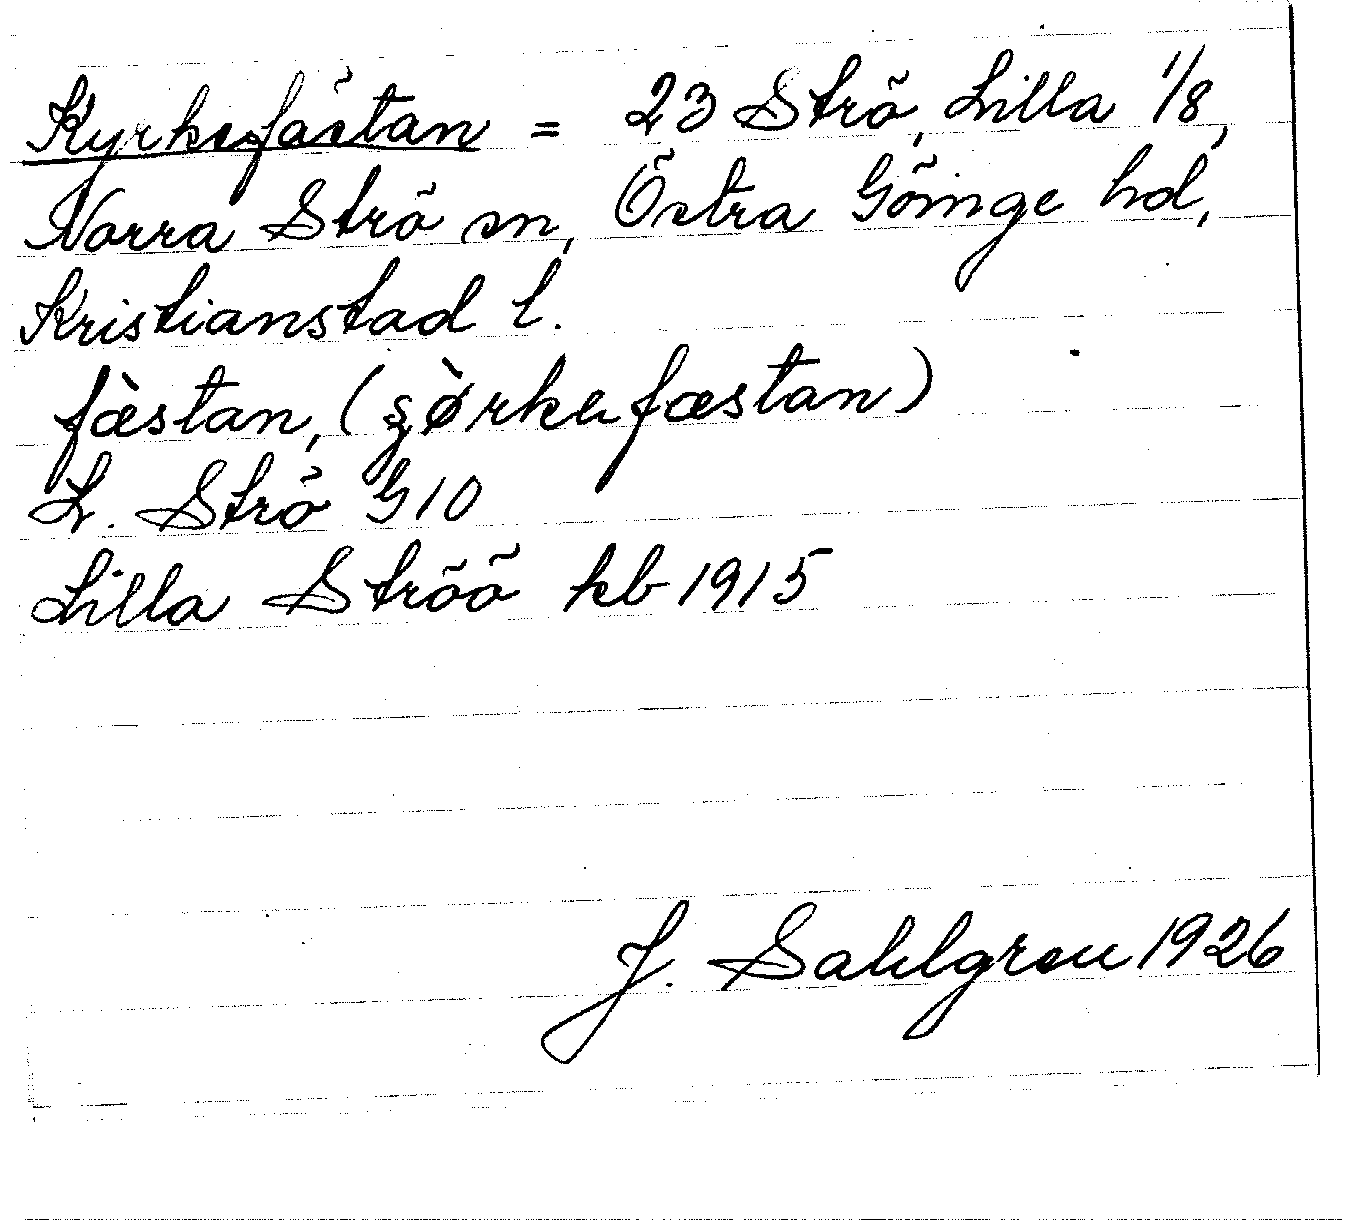 Kyrkefästan = 23 Strö, Lilla 1/8,
Norra Strö sn, Östra Göinge hd,
Kristianstad l.
fæ̀stan, (ʂø̀rkefæstan)
L. Strö G10
Lilla Ströö kb 1915
J. Sahlgren 1926